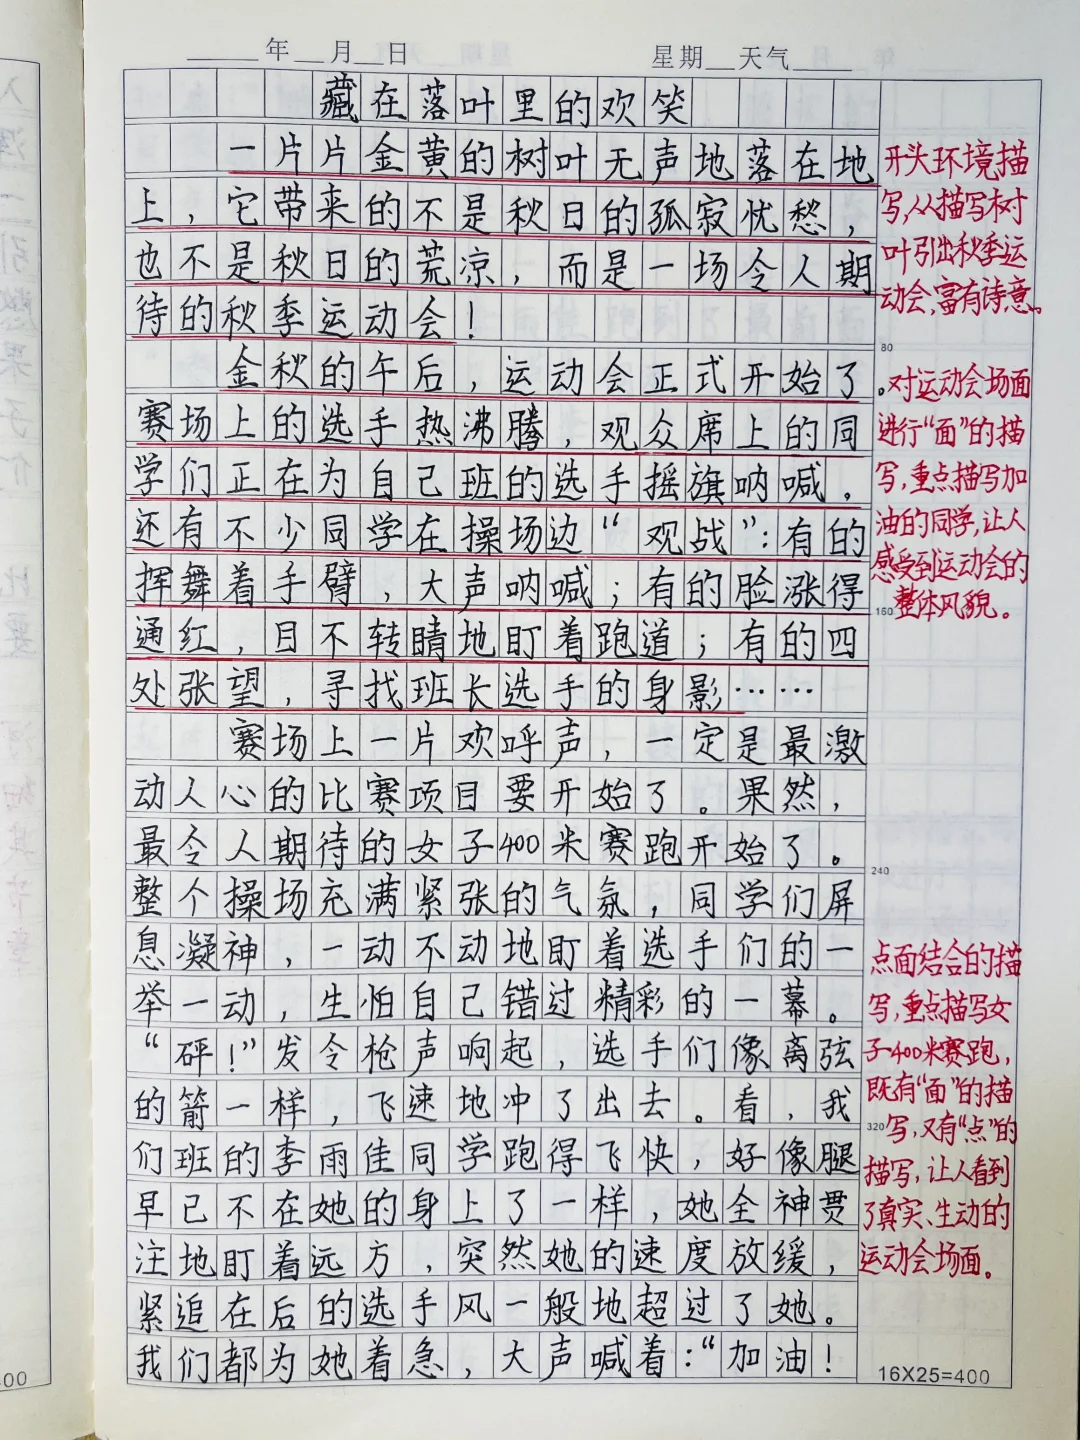 年 月 日 星期 天气
藏在落叶里的欢笑
一片片金黄的树叶无声地落在地
上，它带来的不是秋日的孤寂忧愁，
也不是秋日的荒凉，而是一场令人期
待的秋季运动会！
金秋的午后，运动会正式开始了。
赛场上的选手热沸腾，观众席上的同
学们正在为自己班的选手摇旗呐喊。
还有不少同学在操场边“观战”：有的
挥舞着手臂，大声呐喊；有的脸涨得
通红，目不转睛地盯着跑道；有的四
处张望，寻找班长选手的身影……
赛场上一片欢呼声，一定是最激
动人心的比赛项目要开始了。果然，
最令人期待的女子400米赛跑开始了。
整个操场充满紧张的气氛，同学们屏
息凝神，一动不动地盯着选手们的一
举一动，生怕自己错过精彩的一幕。
“砰！”发令枪声响起，选手们像离弦
的箭一样，飞速地冲了出去。看，我
们班的李雨佳同学跑得飞快，好像腿
早已不在她的身上了一样，她全神贯
注地盯着远方，突然她的速度放缓，
紧追在后的选手风一般地超过了她。
我们都为她着急，大声喊着：“加油！
开头环境描
写，从描写树
叶引出秋季运
动会，富有诗意。
80
对运动会场面
进行“面”的描
写，重点描写加
油的同学，让人
感受到运动会的
整体风貌。
160
240
点面结合的描
写，重点描写女
子400米赛跑，
既有“面”的描
320
写，又有“点”的
描写，让人看到
了真实、生动的
运动会场面。
16X25=400